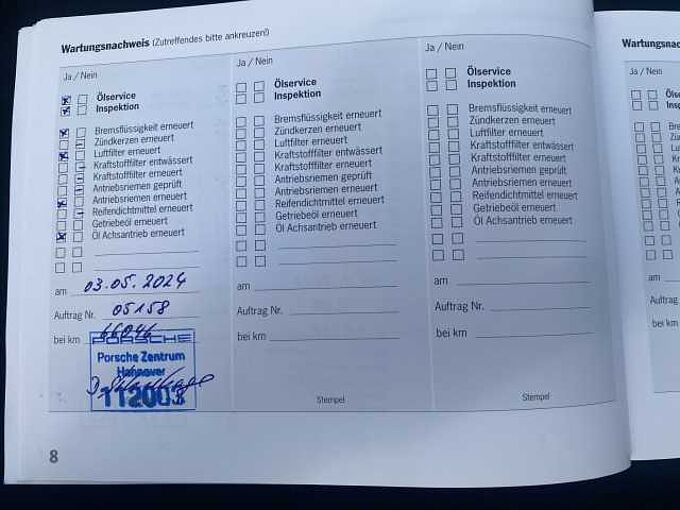 Wartungsnachweis (Zutreffendes bitte ankreuzen!)
Ja / Nein
Ölservice
Inspektion
Bremsflüssigkeit erneuert
Zündkerzen erneuert
Luftfilter erneuert
Kraftstofffilter entwässert
Kraftstofffilter erneuert
Antriebsriemen geprüft
Antriebsriemen erneuert
Reifendichtmittel erneuert
Getriebeöl erneuert
Öl Achsantrieb erneuert
am 03.05.2024
Auftrag Nr. 05158
bei km 66046
PORSCHE
Porsche Zentrum
Hannover
112003
8
Ja / Nein
Ölservice
Inspektion
Bremsflüssigkeit erneuert
Zündkerzen erneuert
Luftfilter erneuert
Kraftstofffilter entwässert
Kraftstofffilter erneuert
Antriebsriemen geprüft
Antriebsriemen erneuert
Reifendichtmittel erneuert
Getriebeöl erneuert
Öl Achsantrieb erneuert
am
Auftrag Nr.
bei km
Stempel
Ja / Nein
Ölservice
Inspektion
Bremsflüssigkeit erneuert
Zündkerzen erneuert
Luftfilter erneuert
Kraftstofffilter entwässert
Kraftstofffilter erneuert
Antriebsriemen geprüft
Antriebsriemen erneuert
Reifendichtmittel erneuert
Getriebeöl erneuert
Öl Achsantrieb erneuert
am
Auftrag Nr.
bei km
Stempel
Wartungsnac
Ja / Nein
Ölse
Insp
Brem
Zün
Luft
Kraf
Kra
Ant
Ant
Rei
Get
Öl
am
Auftrag
bei km